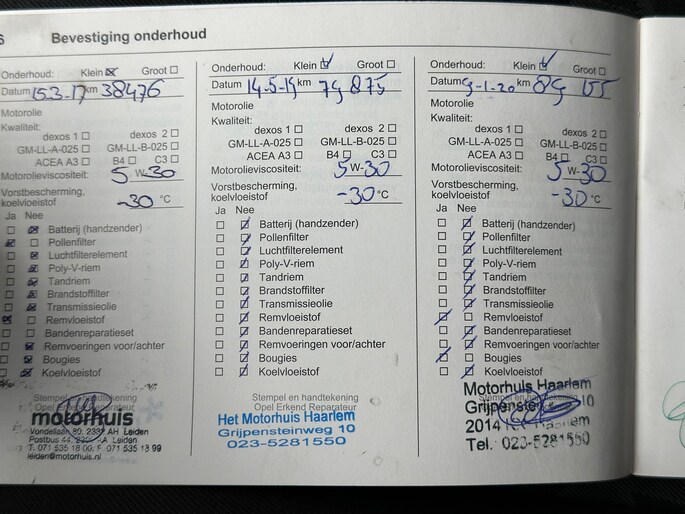 6 Bevestiging onderhoud
Onderhoud: Klein Groot
Datum 15.3-17 km 38476
Motorolie
Kwaliteit:
dexos 1 dexos 2
GM-LL-A-025 GM-LL-B-025
ACEA A3 B4 C3
Motorolieviscositeit: 5 W-30
Vorstbescherming,
koelvloeistof -30 °C
Ja Nee
Batterij (handzender)
Pollenfilter
Luchtfilterelement
Poly-V-riem
Tandriem
Brandstoffilter
Transmissieolie
Remvloeistof
Bandenreparatieset
Remvoeringen voor/achter
Bougies
Koelvloeistof
Stempel en handtekening
Opel Erkend Reparateur
motorhuis
Vondellaan 80, 2332 AH Leiden
Postbus 44, AA Leiden
T. 071 535 18 00, F. 071 535 18 99
leiden@motorhuis.nl
Onderhoud: Klein Groot
Datum 14-5-19 km 79 875
Motorolie
Kwaliteit:
dexos 1 dexos 2
GM-LL-A-025 GM-LL-B-025
ACEA A3 B4 C3
Motorolieviscositeit: 5 W-30
Vorstbescherming,
koelvloeistof -30 °C
Ja Nee
Batterij (handzender)
Pollenfilter
Luchtfilterelement
Poly-V-riem
Tandriem
Brandstoffilter
Transmissieolie
Remvloeistof
Bandenreparatieset
Remvoeringen voor/achter
Bougies
Koelvloeistof
Stempel en handtekening
Opel Erkend Reparateur
Het Motorhuis Haarlem
Grijpensteinweg 10
023-5281550
Onderhoud: Klein Groot
Datum 9-1-20 km 89 155
Motorolie
Kwaliteit:
dexos 1 dexos 2
GM-LL-A-025 GM-LL-B-025
ACEA A3 B4 C3
Motorolieviscositeit: 5 W-30
Vorstbescherming,
koelvloeistof -30 °C
Ja Nee
Batterij (handzender)
Pollenfilter
Luchtfilterelement
Poly-V-riem
Tandriem
Brandstoffilter
Transmissieolie
Remvloeistof
Bandenreparatieset
Remvoeringen voor/achter
Bougies
Koelvloeistof
Motorhuis Haarlem
Stempel en handtekening
10
2014 Haarlem
Tel. 023-5281550